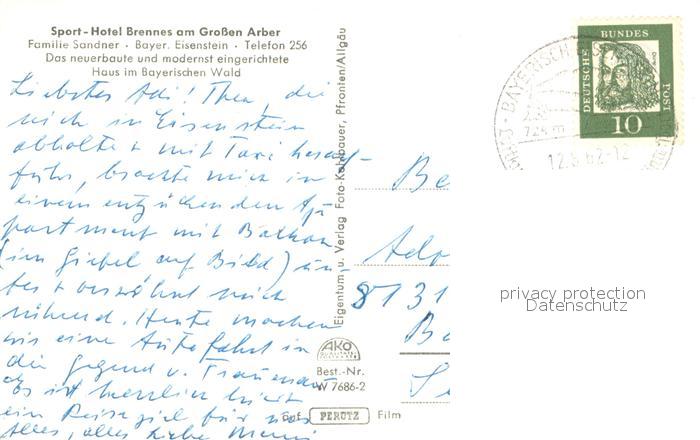 Sport-Hotel Brennes am Großen Arber
Familie Sandner · Bayer. Eisenstein · Telefon 256
Das neuerbaute und modernst eingerichtete
Haus im Bayerischen Wald
Liebster Adi! Thea, die
mich in Eisenstein
abholte + mit Taxi herauf-
fuhr, brachte mich in
einem entzückenden Ap-
partment mit Balkon
(im Giebel auf Bild) un-
ter + verwöhnt mich
rührend. Heute machen
wir eine Autofahrt in
die Gegend v. Frauenau
Es ist herrlich hier
ein Reiseziel für uns
Alles, alles Liebe Mami
Eigentum u. Verlag Foto-Kahlbauer, Pfronten/Allgäu
AKO
Best.-Nr.
W 7686-2
Auf PERUTZ Film
DEUTSCHE BUNDES POST
10
BAYERISCH EIS
12.8.62-12
Be
Ado
8131
Be
privacy protection
Datenschutz